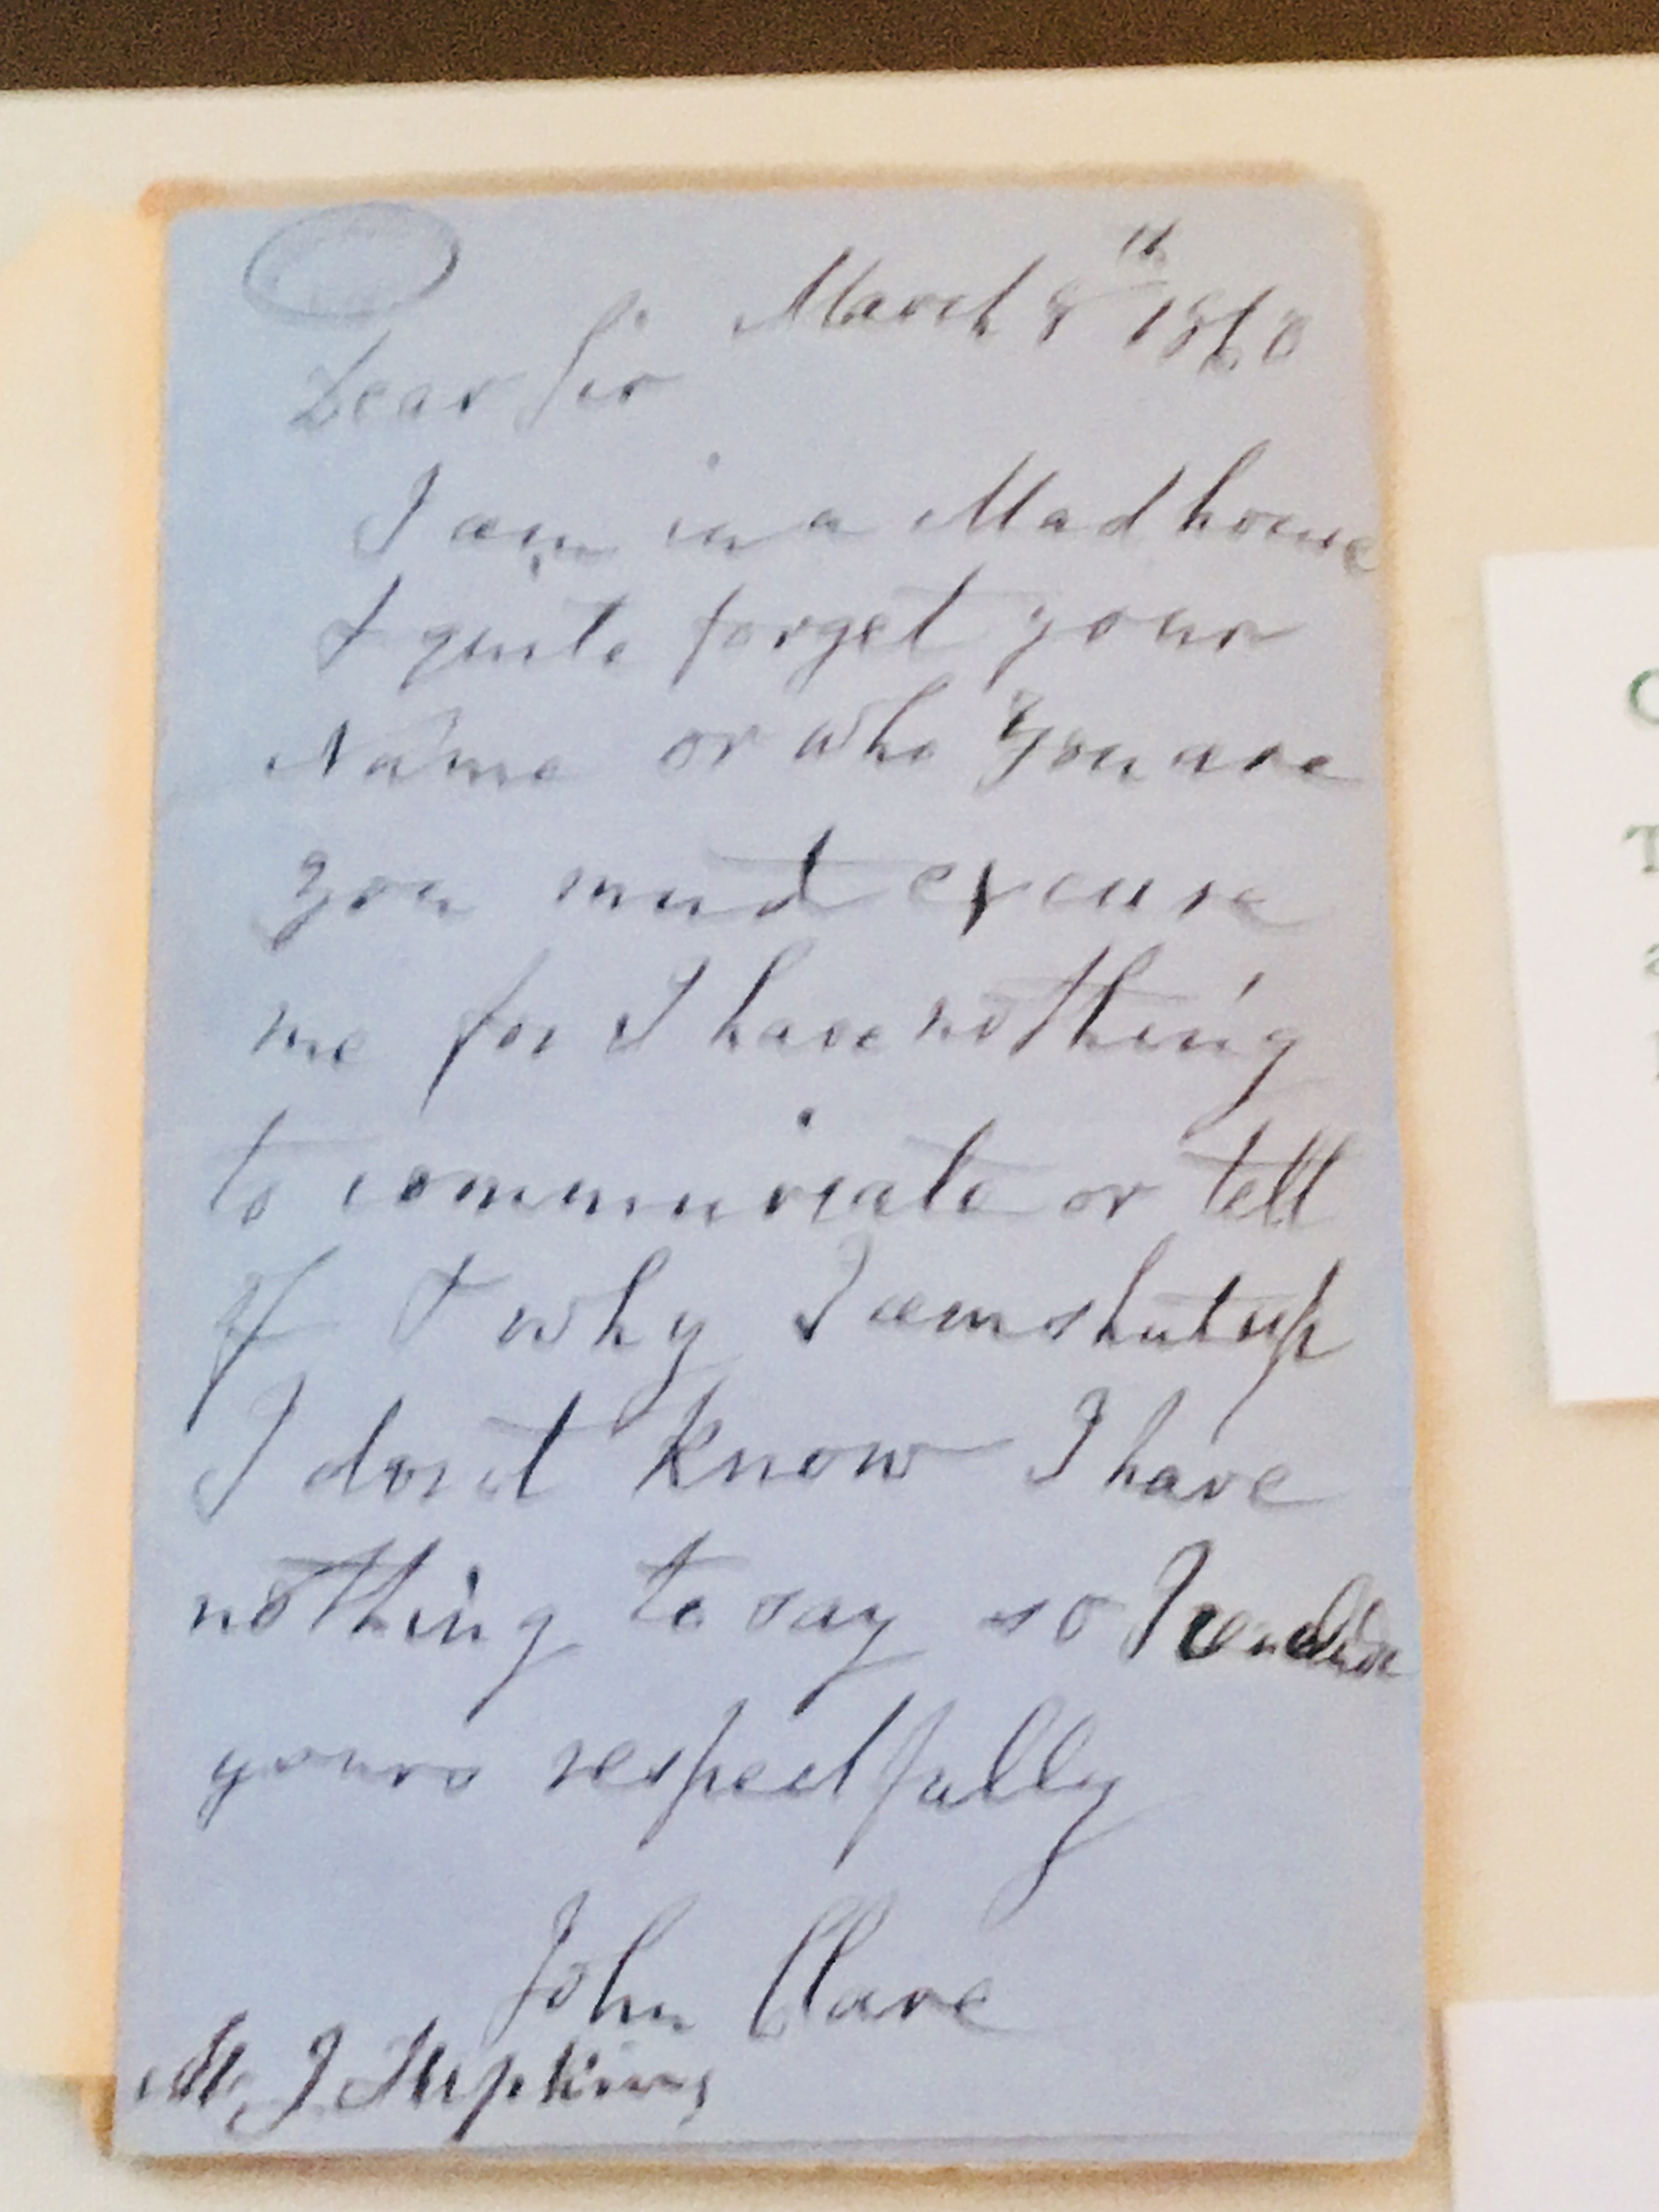 March 8th 1860
Dear Sir
I am in a Mad house
& quite forget your
Name or who you are
you must excuse
me for I have nothing
to communicate or tell
of & why I am shut up
I dont know I have
nothing to say so I conclude
yours respectfully
John Clare
Mr J Hipkins